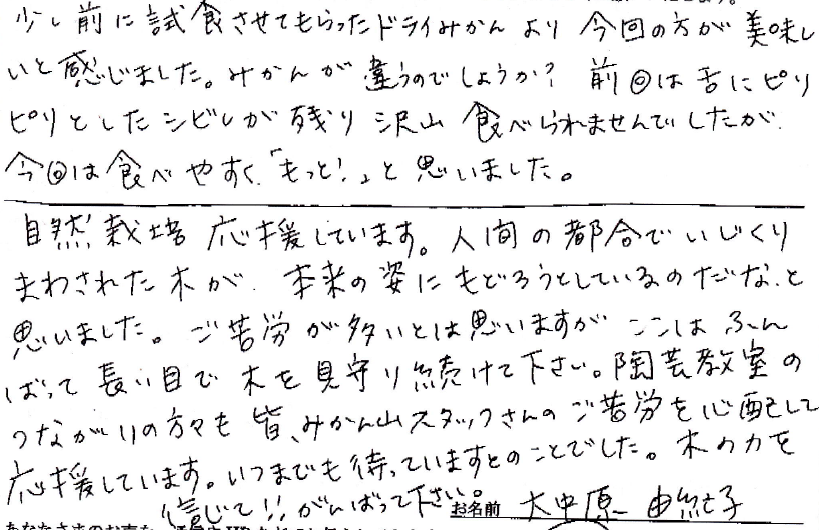 少し前に試食させてもらったドライみかんより今回の方が美味し
いと感じました。みかんが違うのでしょうか？前回は舌にピリ
ピリとしたシビレが残り沢山食べられませんでしたが、
今回は食べやすく、「もっと！」と思いました。
自然栽培応援しています。人間の都合でいじくり
まわされた木が、本来の姿にもどろうとしているのだな、と
思いました。ご苦労が多いとは思いますがここはふん
ばって長い目で木を見守り続けて下さい。陶芸教室の
つながりの方々も皆、みかん山スタッフさんのご苦労を心配して
応援しています。いつまでも待っていますとのことでした。木の力を
信じて!!がんばって下さい。
お名前 大中原 由紀子